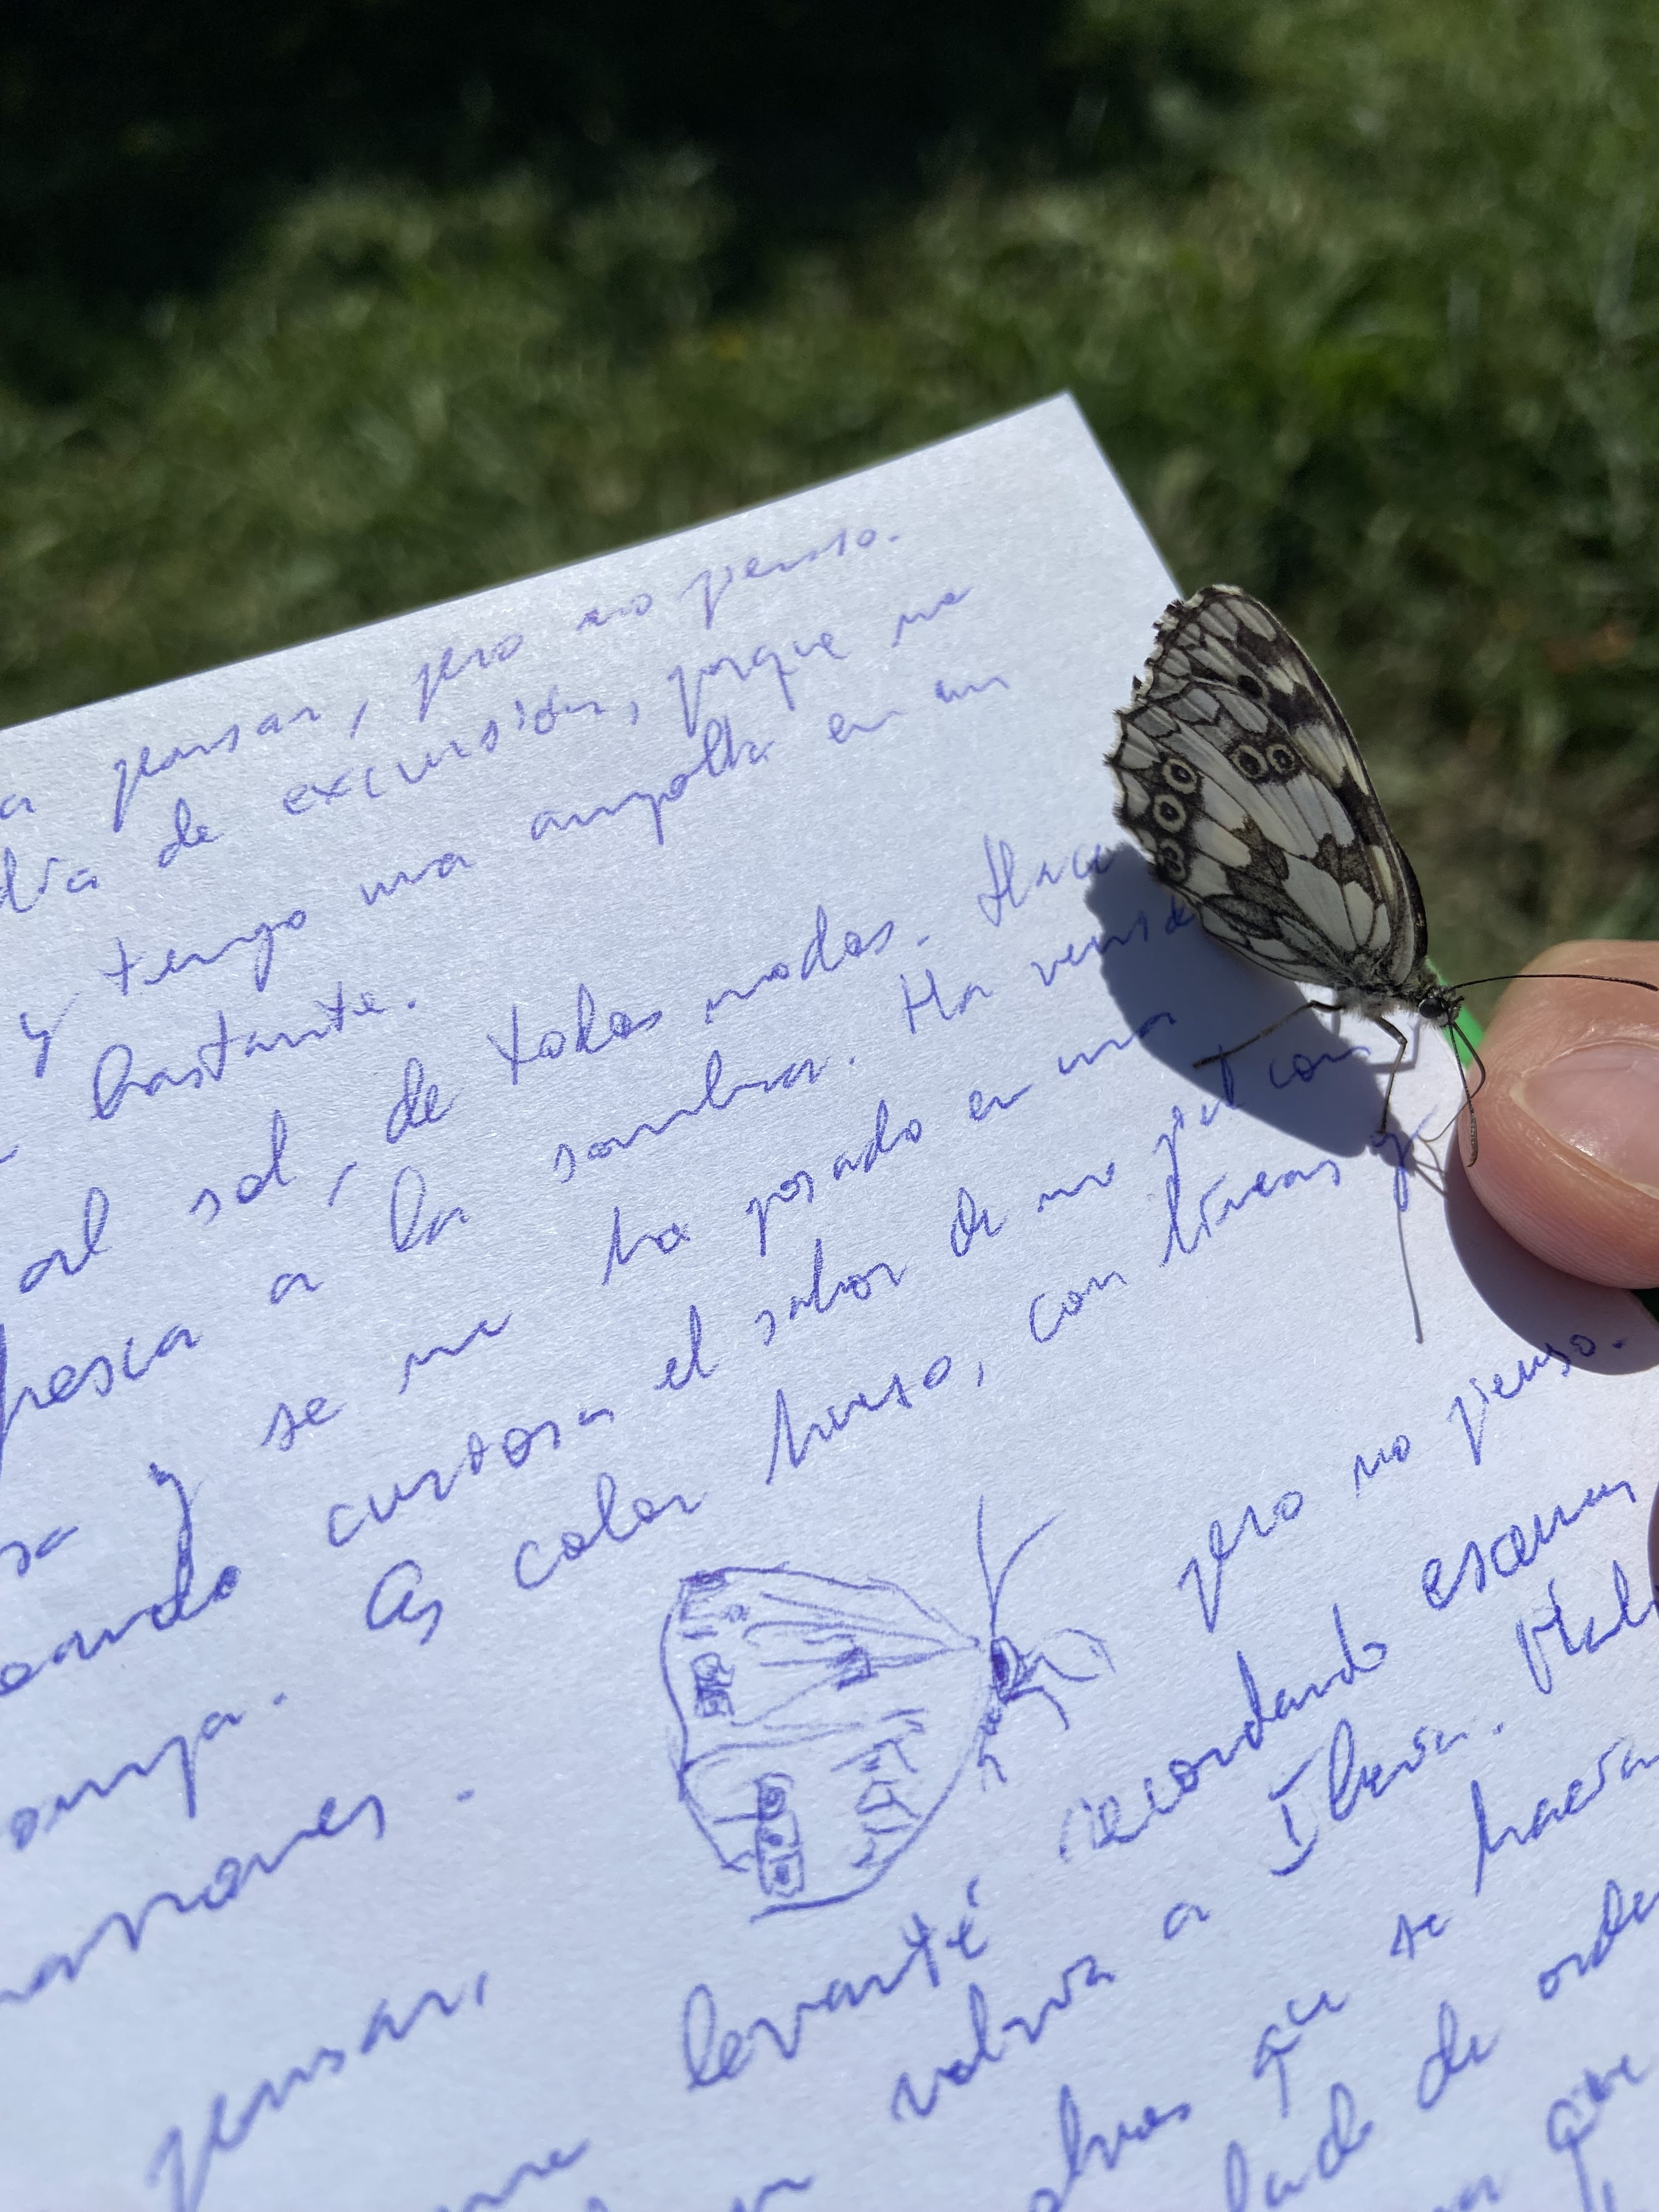 a pensar, pero no pienso.
día de excursión, porque me
y tengo una ampolla en un
bastante.
al sol, de todos modos. Hace
fresca a la sombra. Ha venido
sa y se me ha posado en una
eando curiosa el sabor de mi piel con
ompa. Es color hueso, con líneas y
marrones.
pensar, pero no pienso.
levanté recordando escenas
volvía a Iberia.
que se hacían
lado de
que